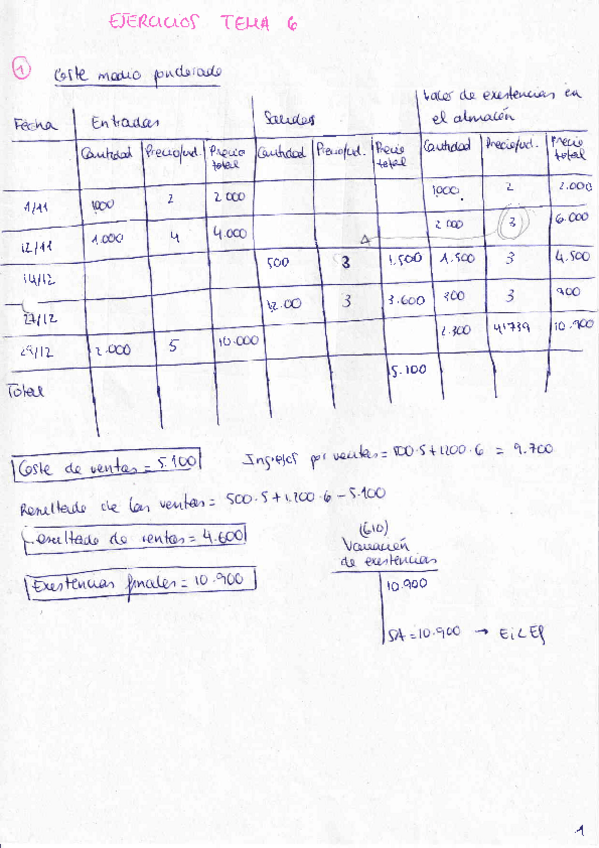 EJERCICIOS TEMA 6
1 Coste medio ponderado
Fecha Entradas Salidas Valor de existencias en el almacén
Cantidad Precio/ud. Precio total Cantidad Precio/ud. Precio total Cantidad Precio/ud. Precio total
1/11 1000 2 2.000 1000 2 2.000
12/11 1.000 4 4.000 2.000 3 6.000
14/12 500 3 1.500 1.500 3 4.500
27/12 12.00 3 3.600 300 3 900
29/12 2.000 5 10.000 2.300 4'739 10.900
Total 5.100
Coste de ventas = 5.100 Ingresos por ventas = 500·5+1200·6 = 9.700
Resultado de las ventas = 500·5+1.200·6-5.100
Resultado de ventas = 4.600
(610)
Variación
de existencias
Existencias finales = 10.900
10.900
SA = 10.900 → Ei<Ef
1